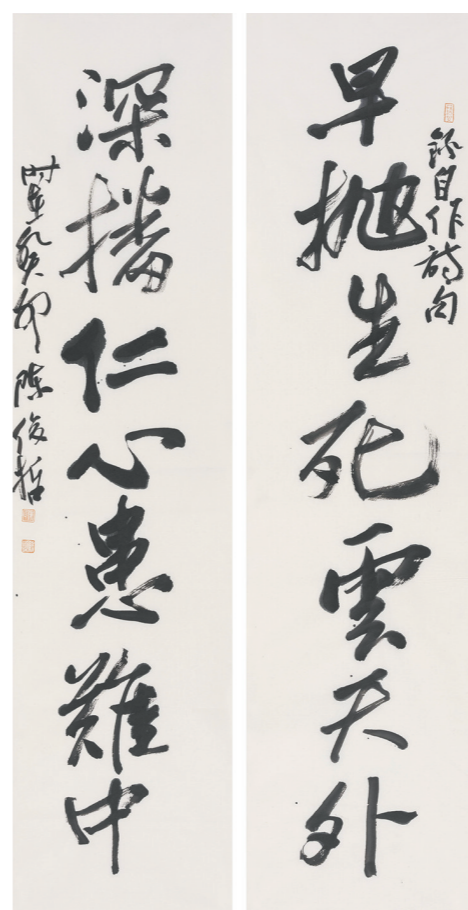 錄自作詩句
早拋生死雲天外
深播仁心患難中
時在癸卯 陳俊哲